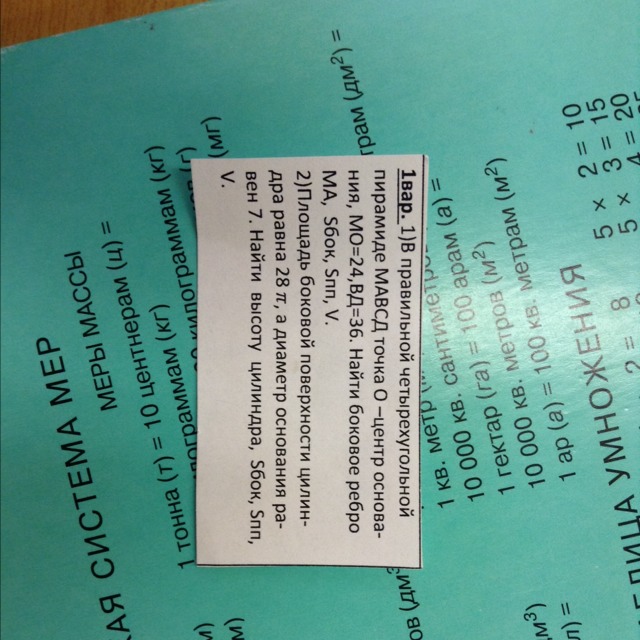 1вар. 1)В правильной четырехугольной
пирамиде МАВСД точка О –центр основа-
ния, МО=24,ВД=36. Найти боковое ребро
МА, Sбок, Sпп, V.
2)Площадь боковой поверхности цилин-
дра равна 28 π, а диаметр основания ра-
вен 7. Найти высоту цилиндра, Sбок, Sпп,
V.
СИСТЕМА МЕР
МЕРЫ МАССЫ
1 тонна (т) = 10 центнерам (ц) =
(кг)
килограммам (кг)
(мг)
(дм²) =
1 кв.
10 000 кв.
1 гектар (га) = 100 арам (а) =
10 000 кв. метров (м²)
1 ар (а) = 100 кв. метрам (м²)
УМНОЖЕНИЯ
5 × 2 = 10
5 × 3 = 15
5 × 4 = 20